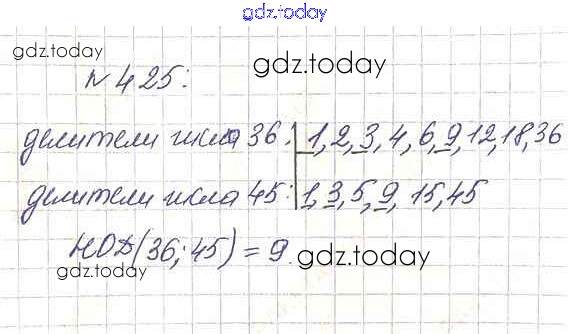 gdz.today
gdz.today
gdz.today
№ 425:
делители числа 36: 1, 2, 3, 4, 6, 9, 12, 18, 36
делители числа 45: 1, 3, 5, 9, 15, 45
НОД(36; 45) = 9.
gdz.today
gdz.today